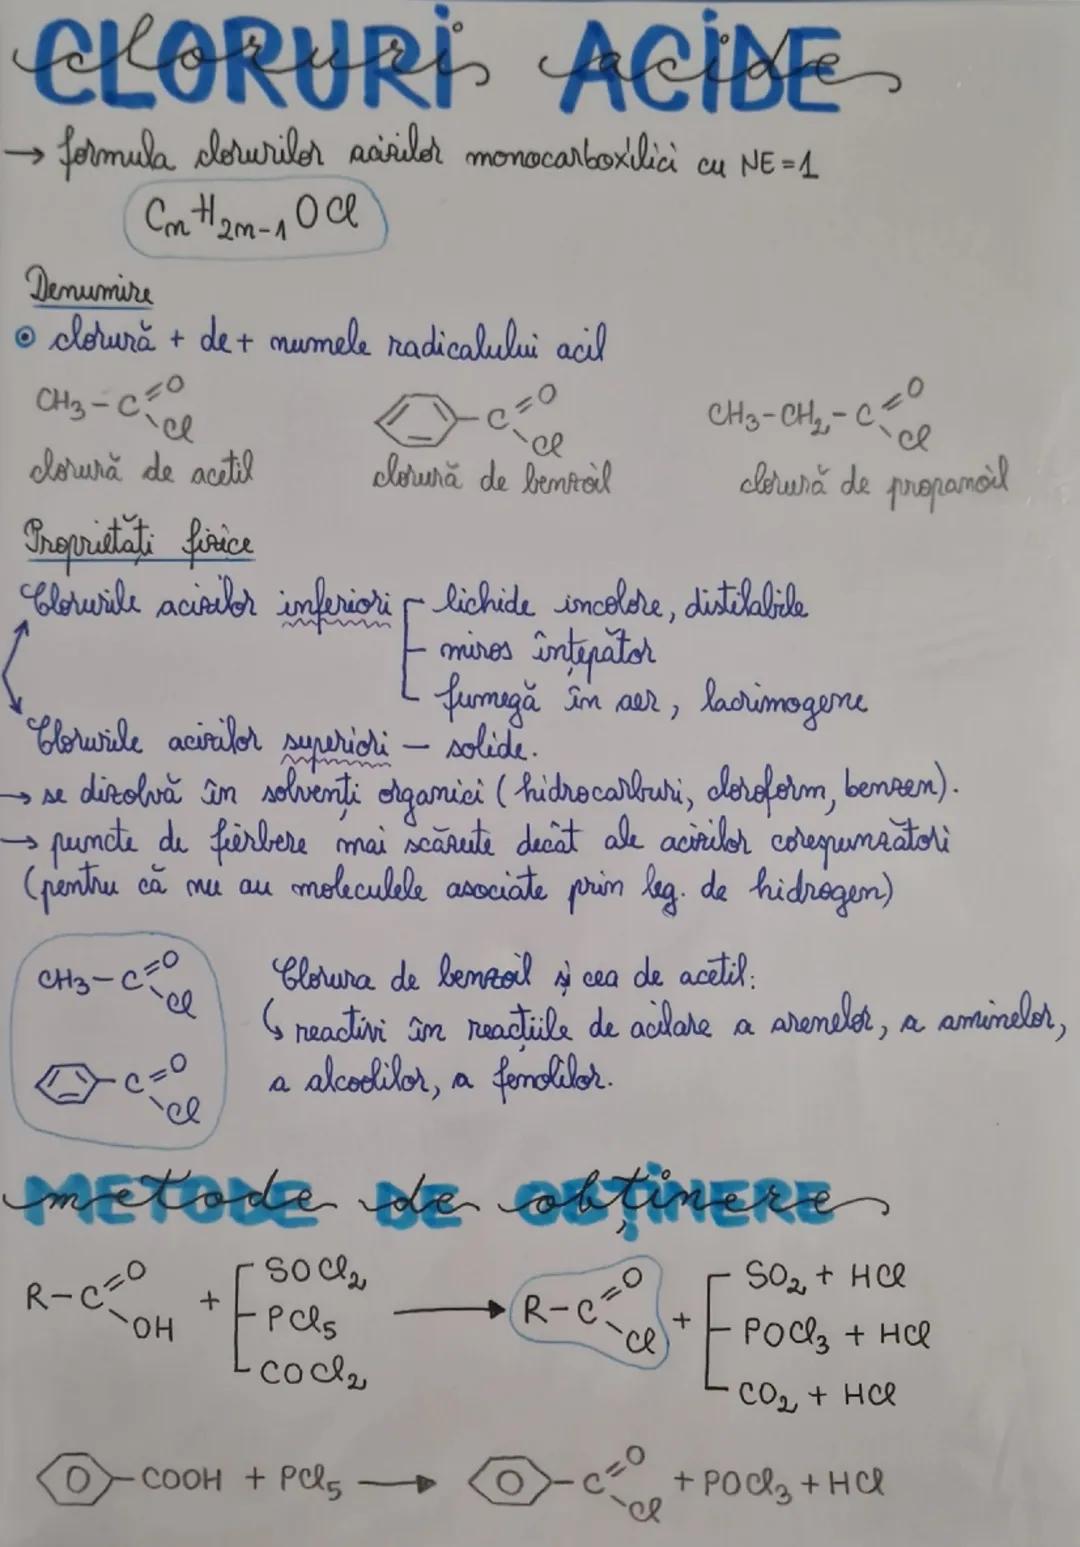 CLORURI ACIDE
cloruri acide
→ formula clorurilor acizilor monocarboxilici cu NE=1
CnH2n-1OCl
Denumire
clorură + de + numele radicalului acil
CH3-C=O CH3-CH2-C=O
Cl C=O Cl Cl
clorură de acetil clorură de benzoil clorură de propanoil
Proprietăți fizice
Clorurile acizilor inferiori - lichide incolore, distilabile
- miros întepător
- fumegă în aer, lacrimogene
Clorurile acizilor superiori - solide.
→ se dizolvă în solvenți organici (hidrocarburi, cloroform, benzen).
→ puncte de fierbere mai scăzute decât ale acizilor corespunzători
(pentru că nu au moleculele asociate prin leg. de hidrogen)
CH3-C=O Cl
Clorura de benzoil și cea de acetil:
↳ reactivi în reacțiile de acilare a arenelor, a aminelor,
C=O Cl a alcoolilor, a fenolilor.
METODE DE OBȚINERE
metode de obținere
R-C=O OH + SOCl2 → R-C=O Cl + SO2 + HCl
PCl5 POCl3 + HCl
COCl2 CO2 + HCl
-COOH + PCl5 → -C=O Cl + POCl3 + HCl